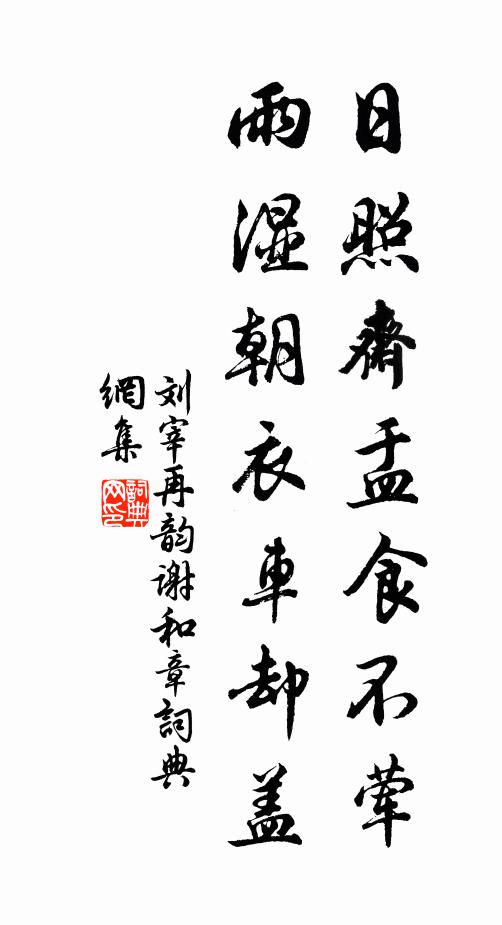 日照齋盂食不荤
雨湿朝衣車却盖
刘宰再韵谢和章詞典
網集
詞典
网印